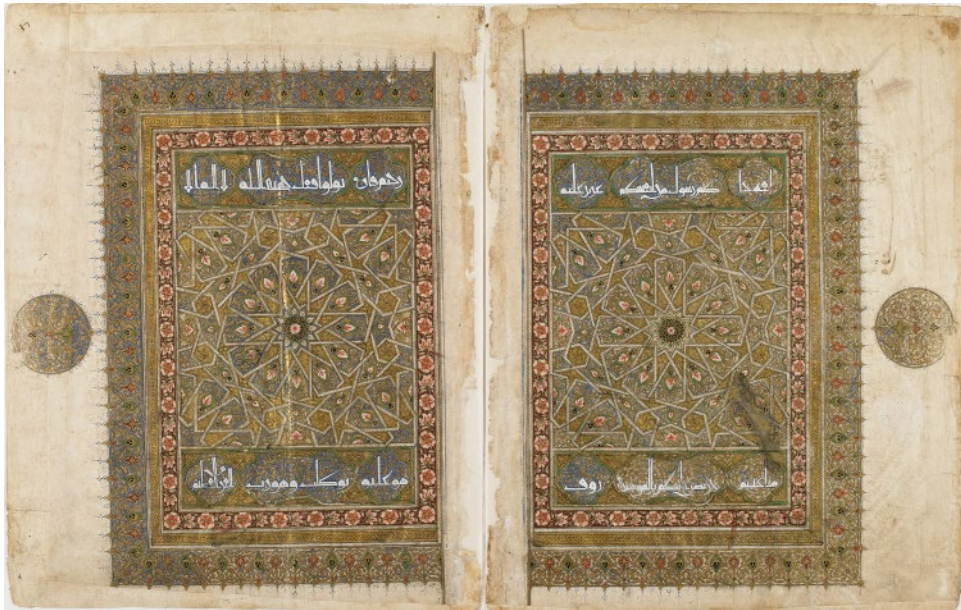 لقد جا كم رسول من انفسكم عزيز عليه
ما عنتم حريص عليكم بالمومنين روف
رحيم فان تولوا فقل حسبي الله لا اله الا
هو عليه توكلت وهو رب العرش العظيم